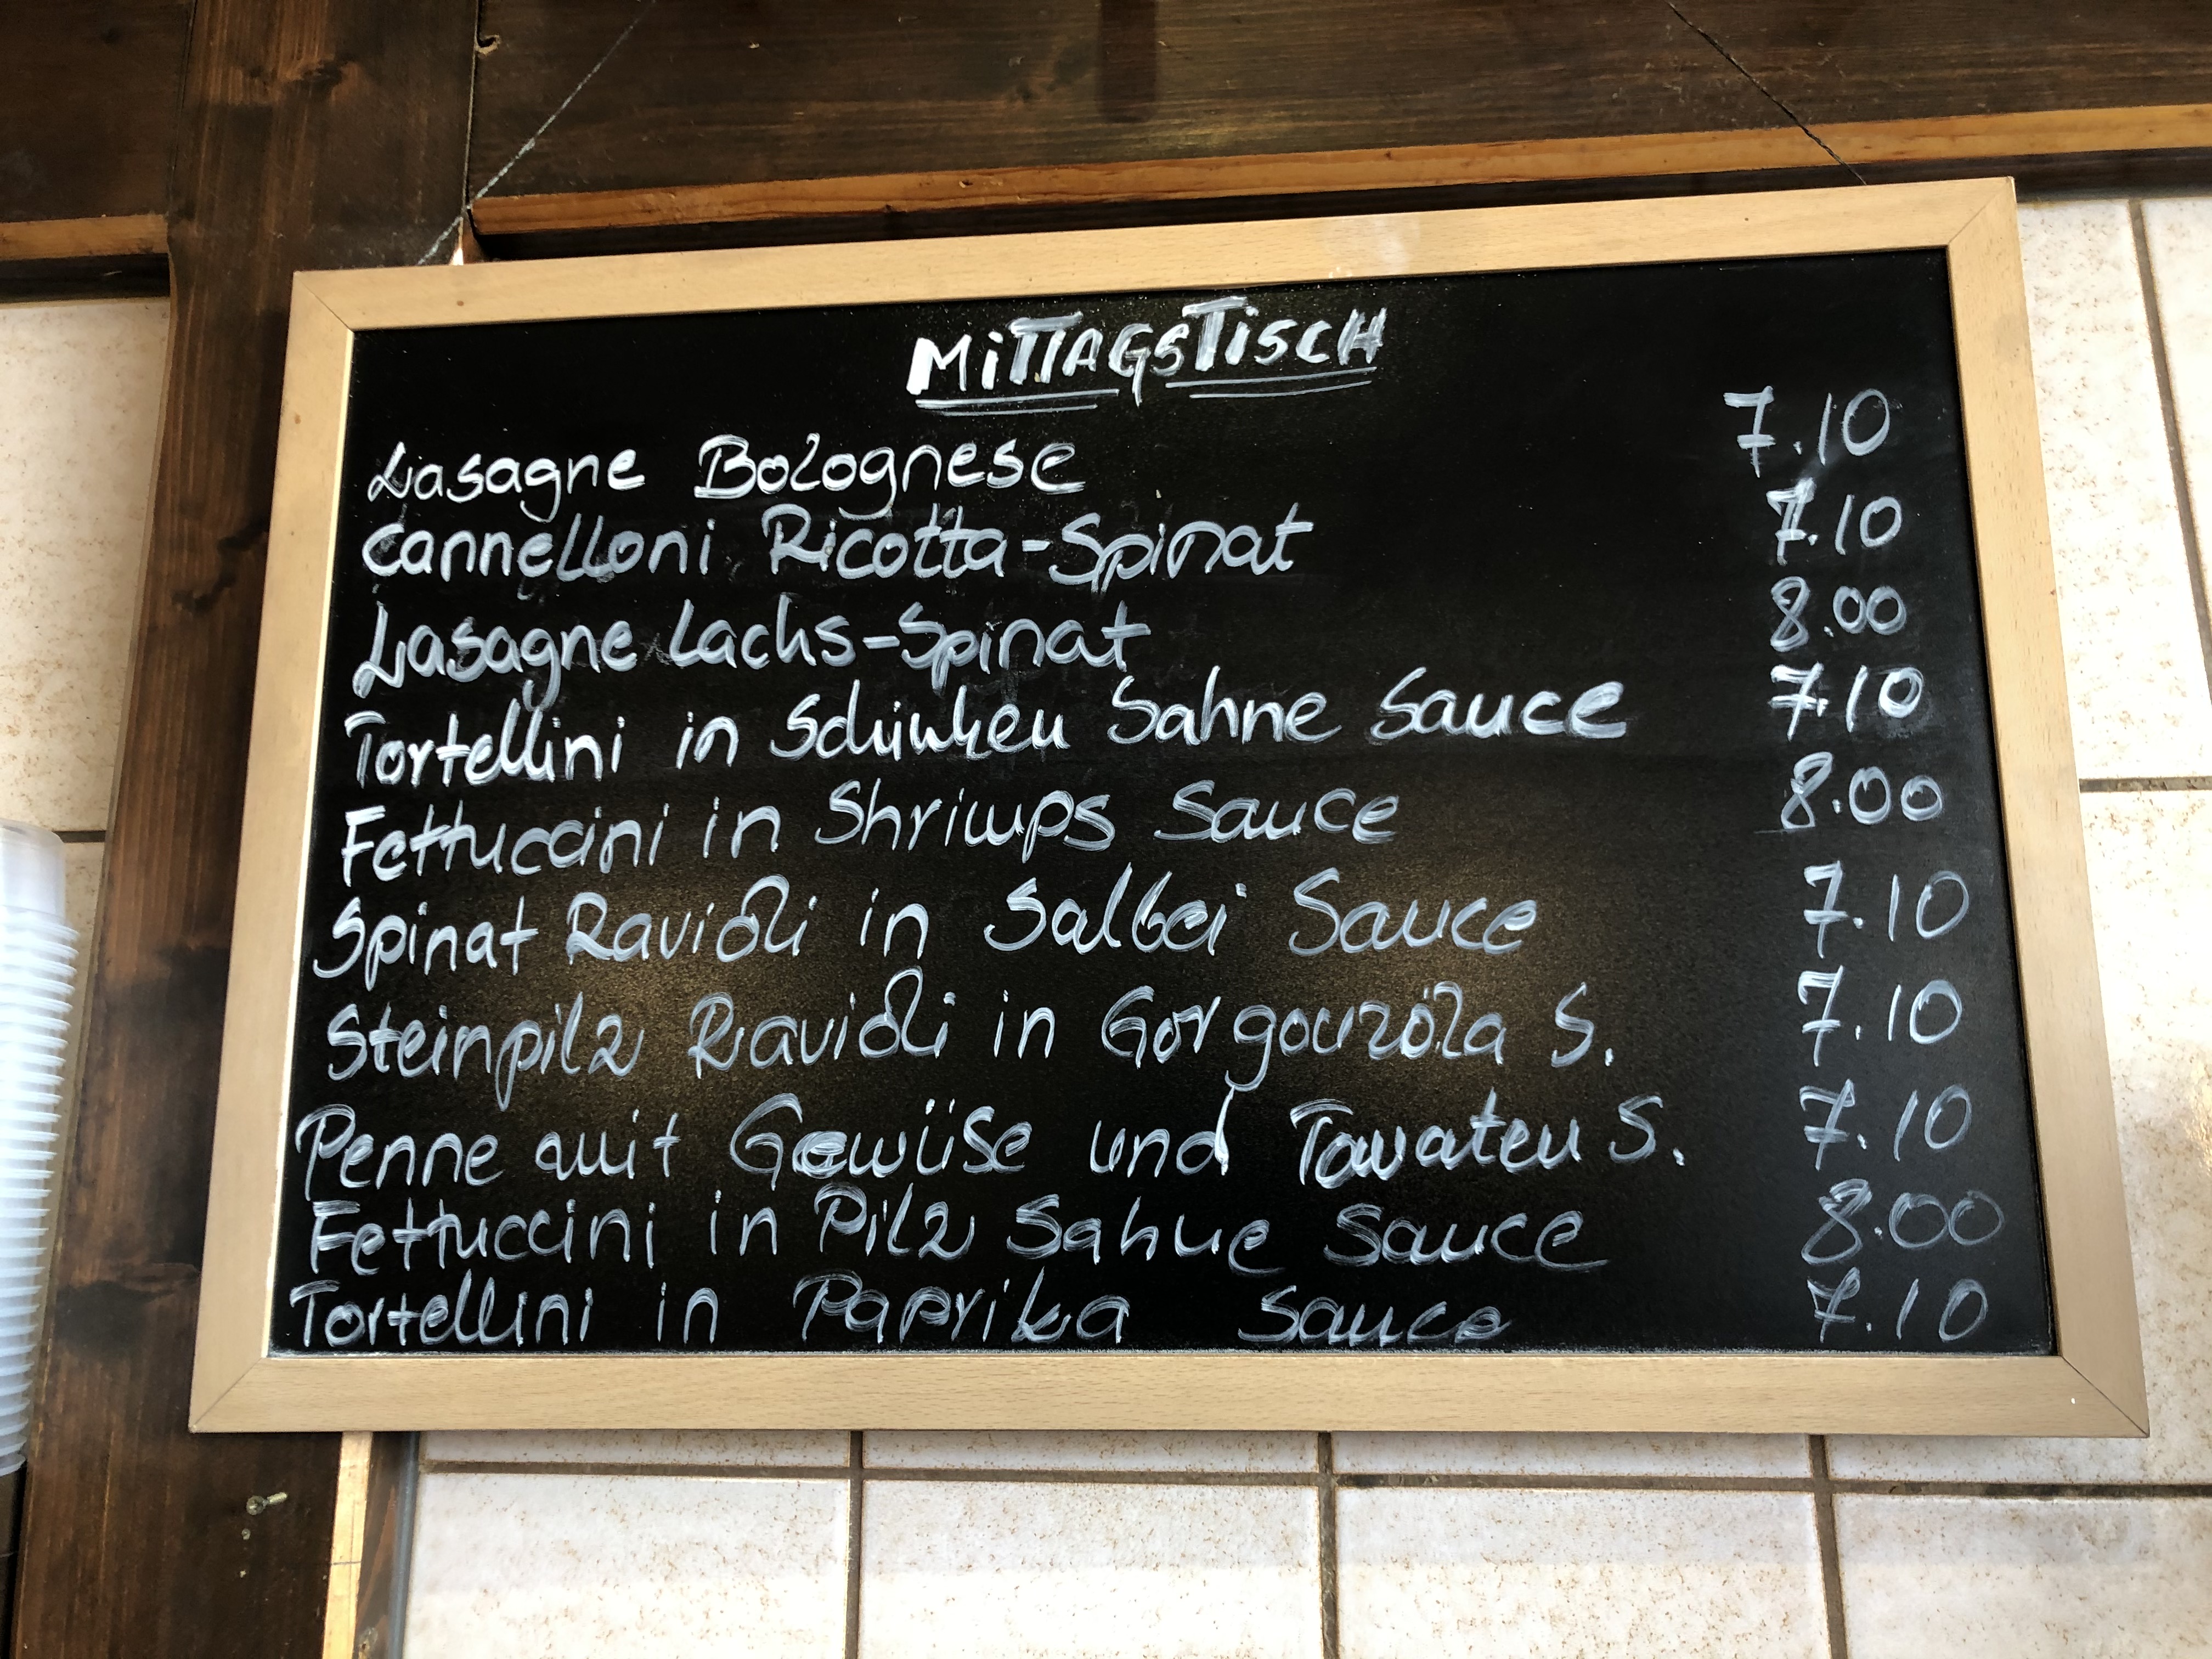 MITTAGSTISCH
Lasagne Bolognese 7.10
Cannelloni Ricotta-Spinat 7.10
Lasagne Lachs-Spinat 8.00
Tortellini in Schinken Sahne Sauce 7.10
Fettuccini in Shrimps Sauce 8.00
Spinat Ravioli in Salbei Sauce 7.10
Steinpilz Ravioli in Gorgonzola S. 7.10
Penne mit Gemüse und Tomaten S. 7.10
Fettuccini in Pilz Sahne Sauce 8.00
Tortellini in Paprika Sauce 7.10